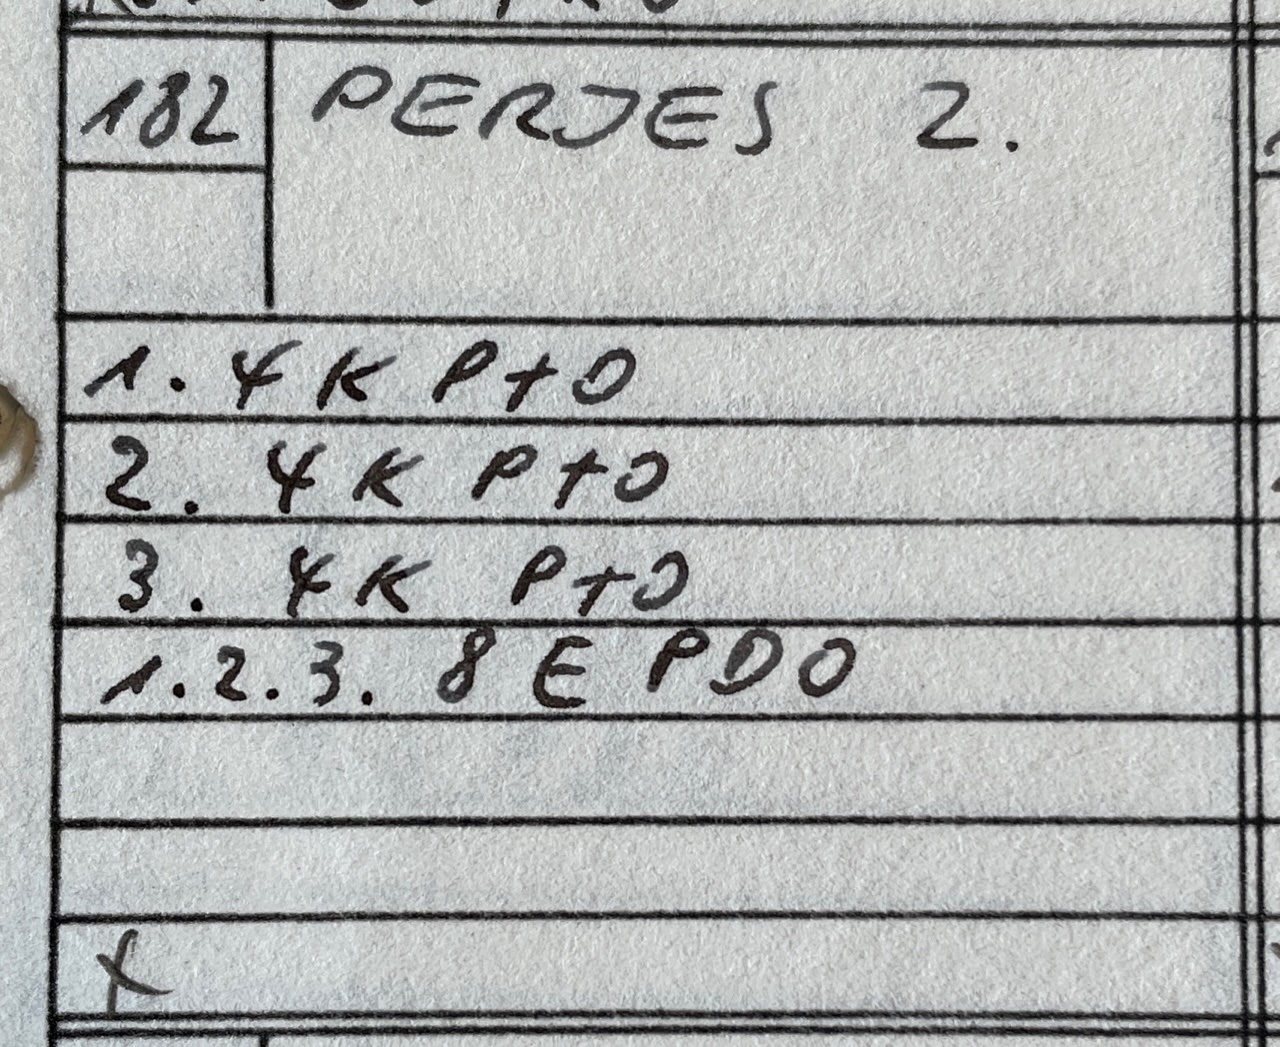 182 PERJES 2.
1. 4K P+O
2. 4K P+O
3. 4K P+O
1.2.3. 8 E PDO
X